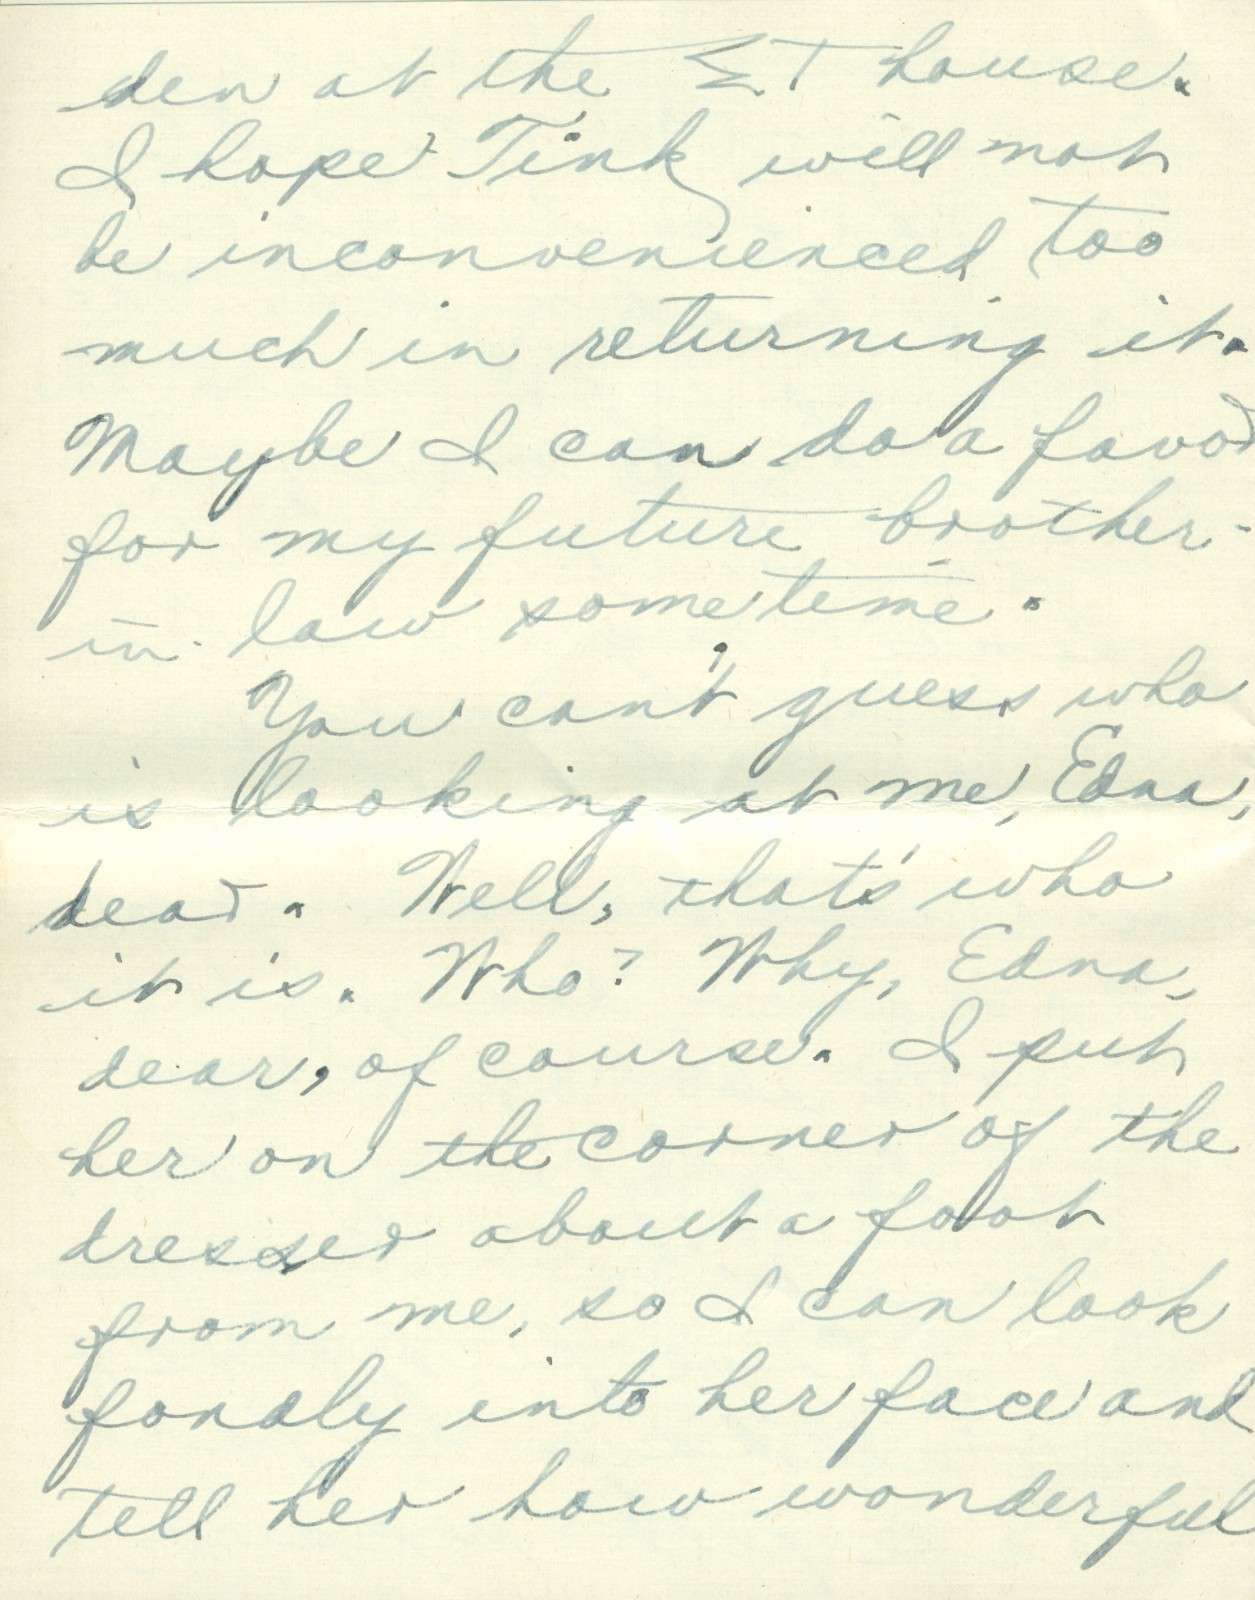 den at the ΣT house.
I hope Tink will not
be inconvenienced too
much in returning it.
Maybe I can do a favor
for my future brother-
in-law sometime.
You can't guess who
is looking at me, Edna,
dear. Well, that's who
it is. Who? Why, Edna,
dear, of course. I put
her on the corner of the
dresser about a foot
from me, so I can look
fondly into her face and
tell her how wonderful